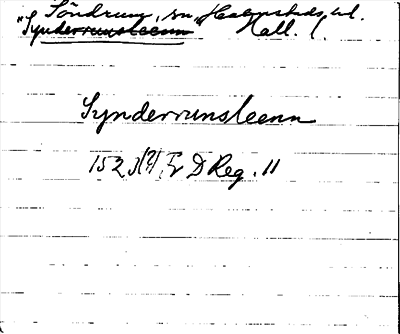 Söndrum, sn, Halmstads hd.
"Synderrumsleenn Hall. l.
Synderrumsleenn
152 Fr D Reg. 11